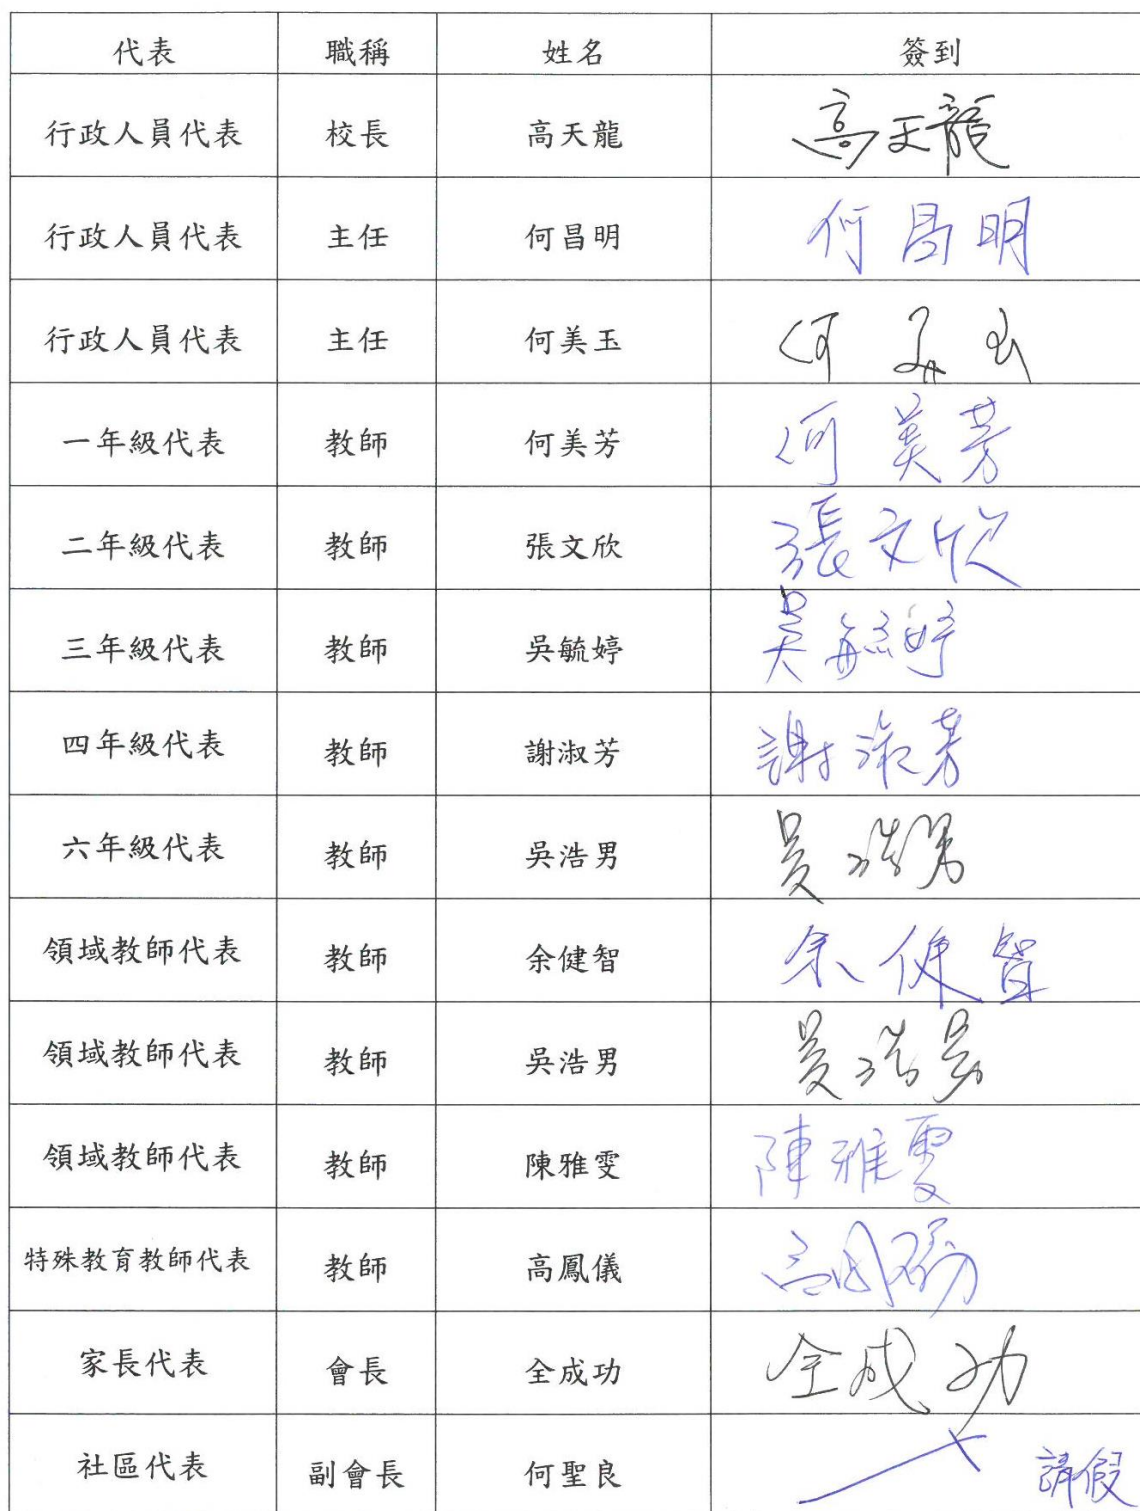 代表 職稱 姓名 簽到
行政人員代表 校長 高天龍 高天龍
行政人員代表 主任 何昌明 何昌明
行政人員代表 主任 何美玉 何美玉
一年級代表 教師 何美芳 何美芳
二年級代表 教師 張文欣 張文欣
三年級代表 教師 吳毓婷 吳毓婷
四年級代表 教師 謝淑芳 謝淑芳
六年級代表 教師 吳浩男 吳浩男
領域教師代表 教師 余健智 余健智
領域教師代表 教師 吳浩男 吳浩男
領域教師代表 教師 陳雅雯 陳雅雯
特殊教育教師代表 教師 高鳳儀
家長代表 會長 全成功 全成功
社區代表 副會長 何聖良 請假